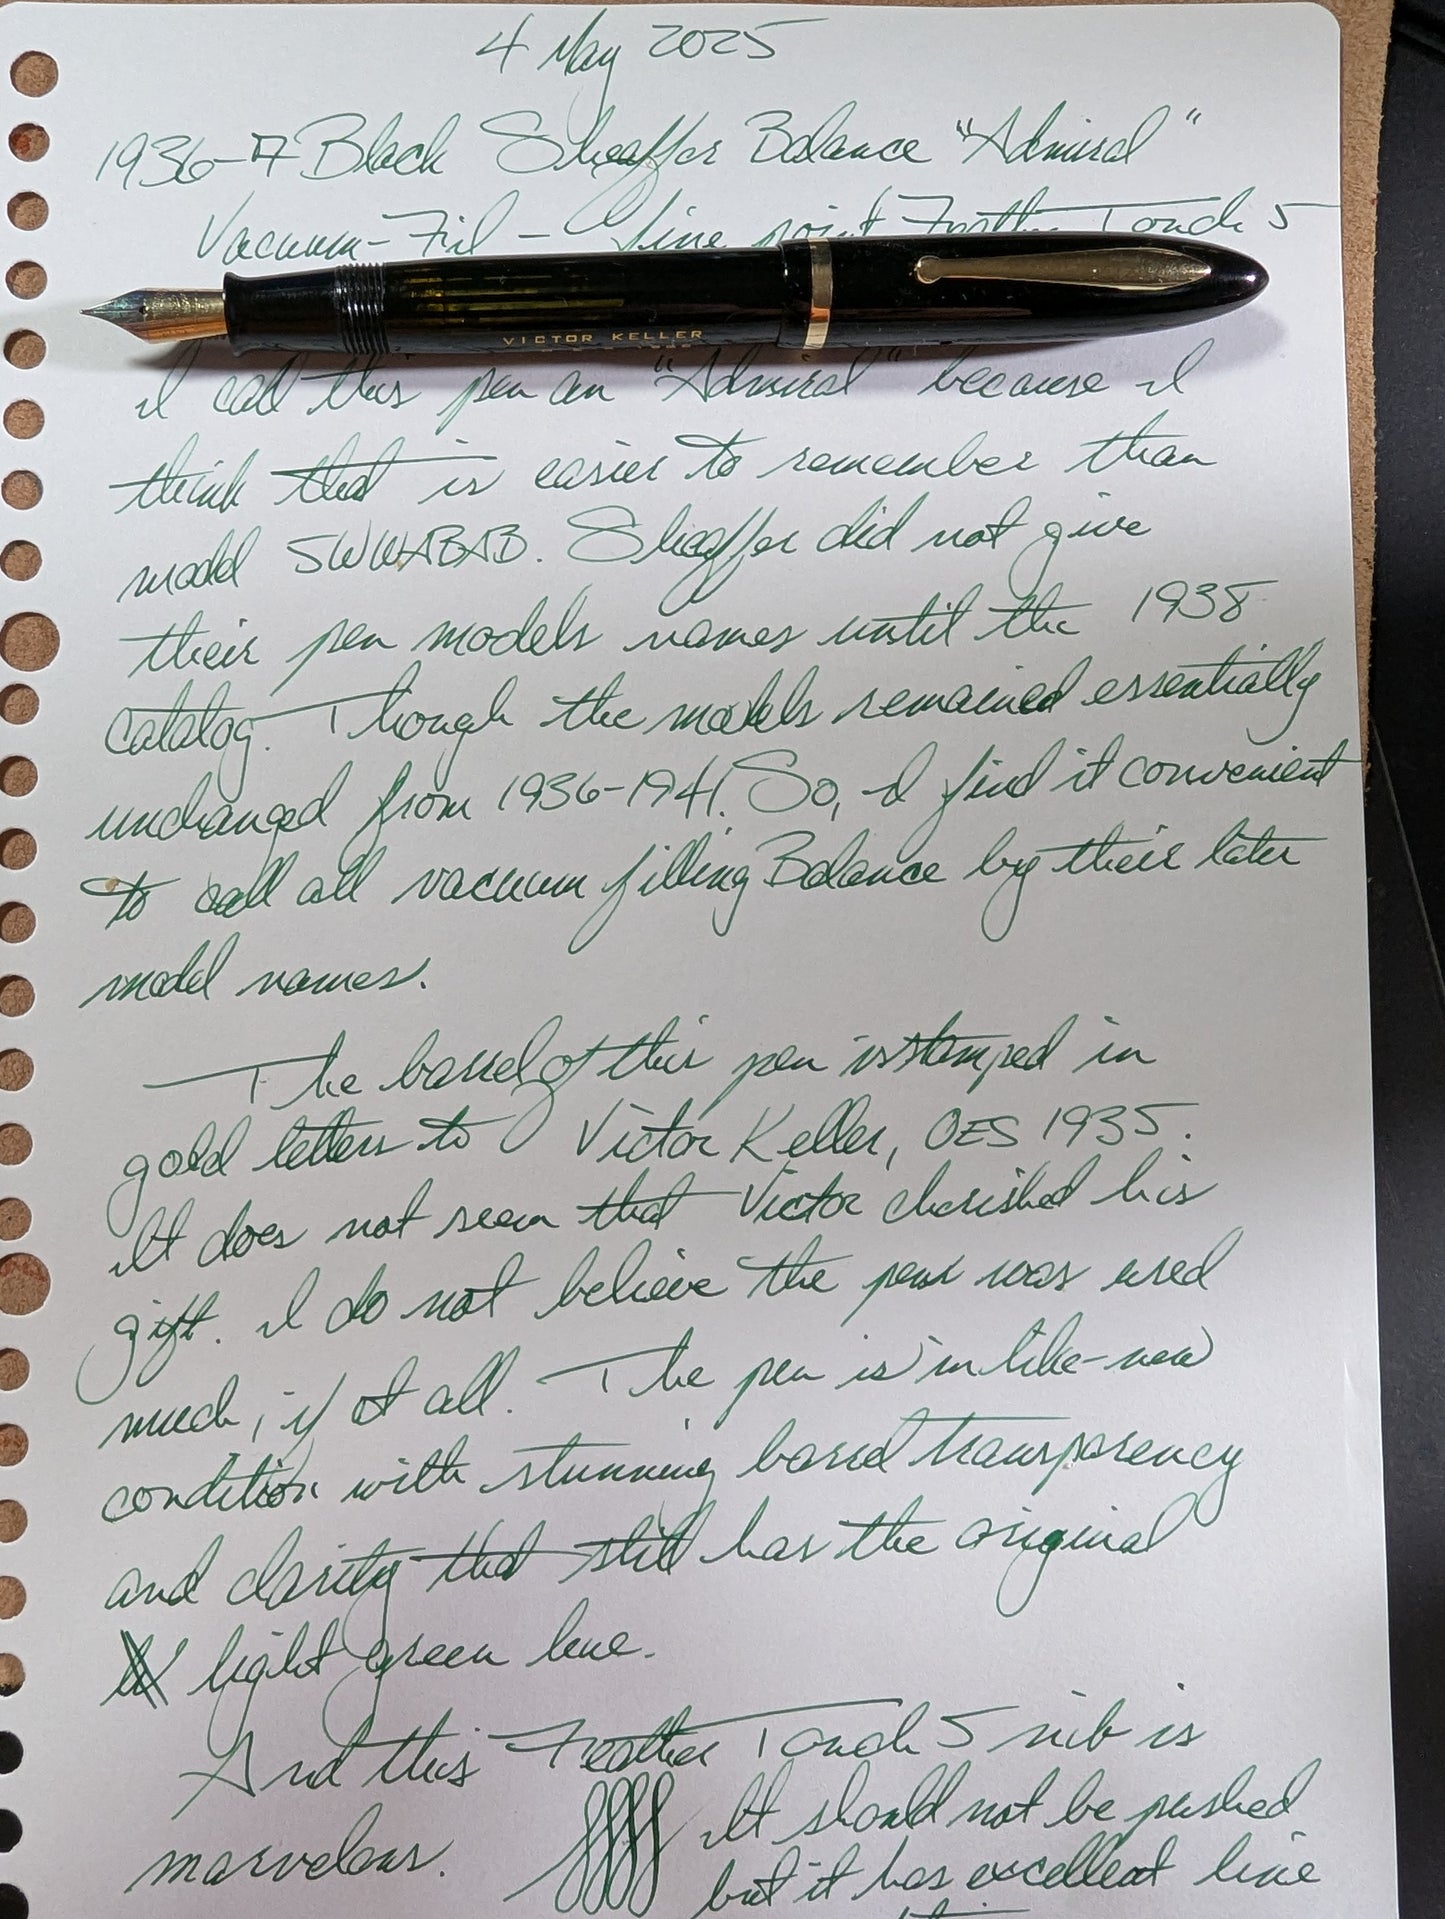 4 May 2025
1936-7 Black Sheaffer Balance "Admiral"
Vacuum-Fil - fine point Feather Touch 5
VICTOR KELLER
I call this pen an "Admiral" because I
think that is easier to remember than
model 5WWABAB. Sheaffer did not give
their pen models names until the 1938
catalog. Though the models remained essentially
unchanged from 1936-1941. So, I find it convenient
to call all vacuum filling Balance by their later
model names.
The barrel of this pen is stamped in
gold letters to Victor Keller, OES 1935.
It does not seem that Victor cherished his
gift. I do not believe the pen was used
much, if at all. The pen is in like-new
condition with stunning barrel transparency
and clarity that still has the original
light green hue.
And this Feather Touch 5 nib is
marvelous. It should not be pushed
but it has excellent line